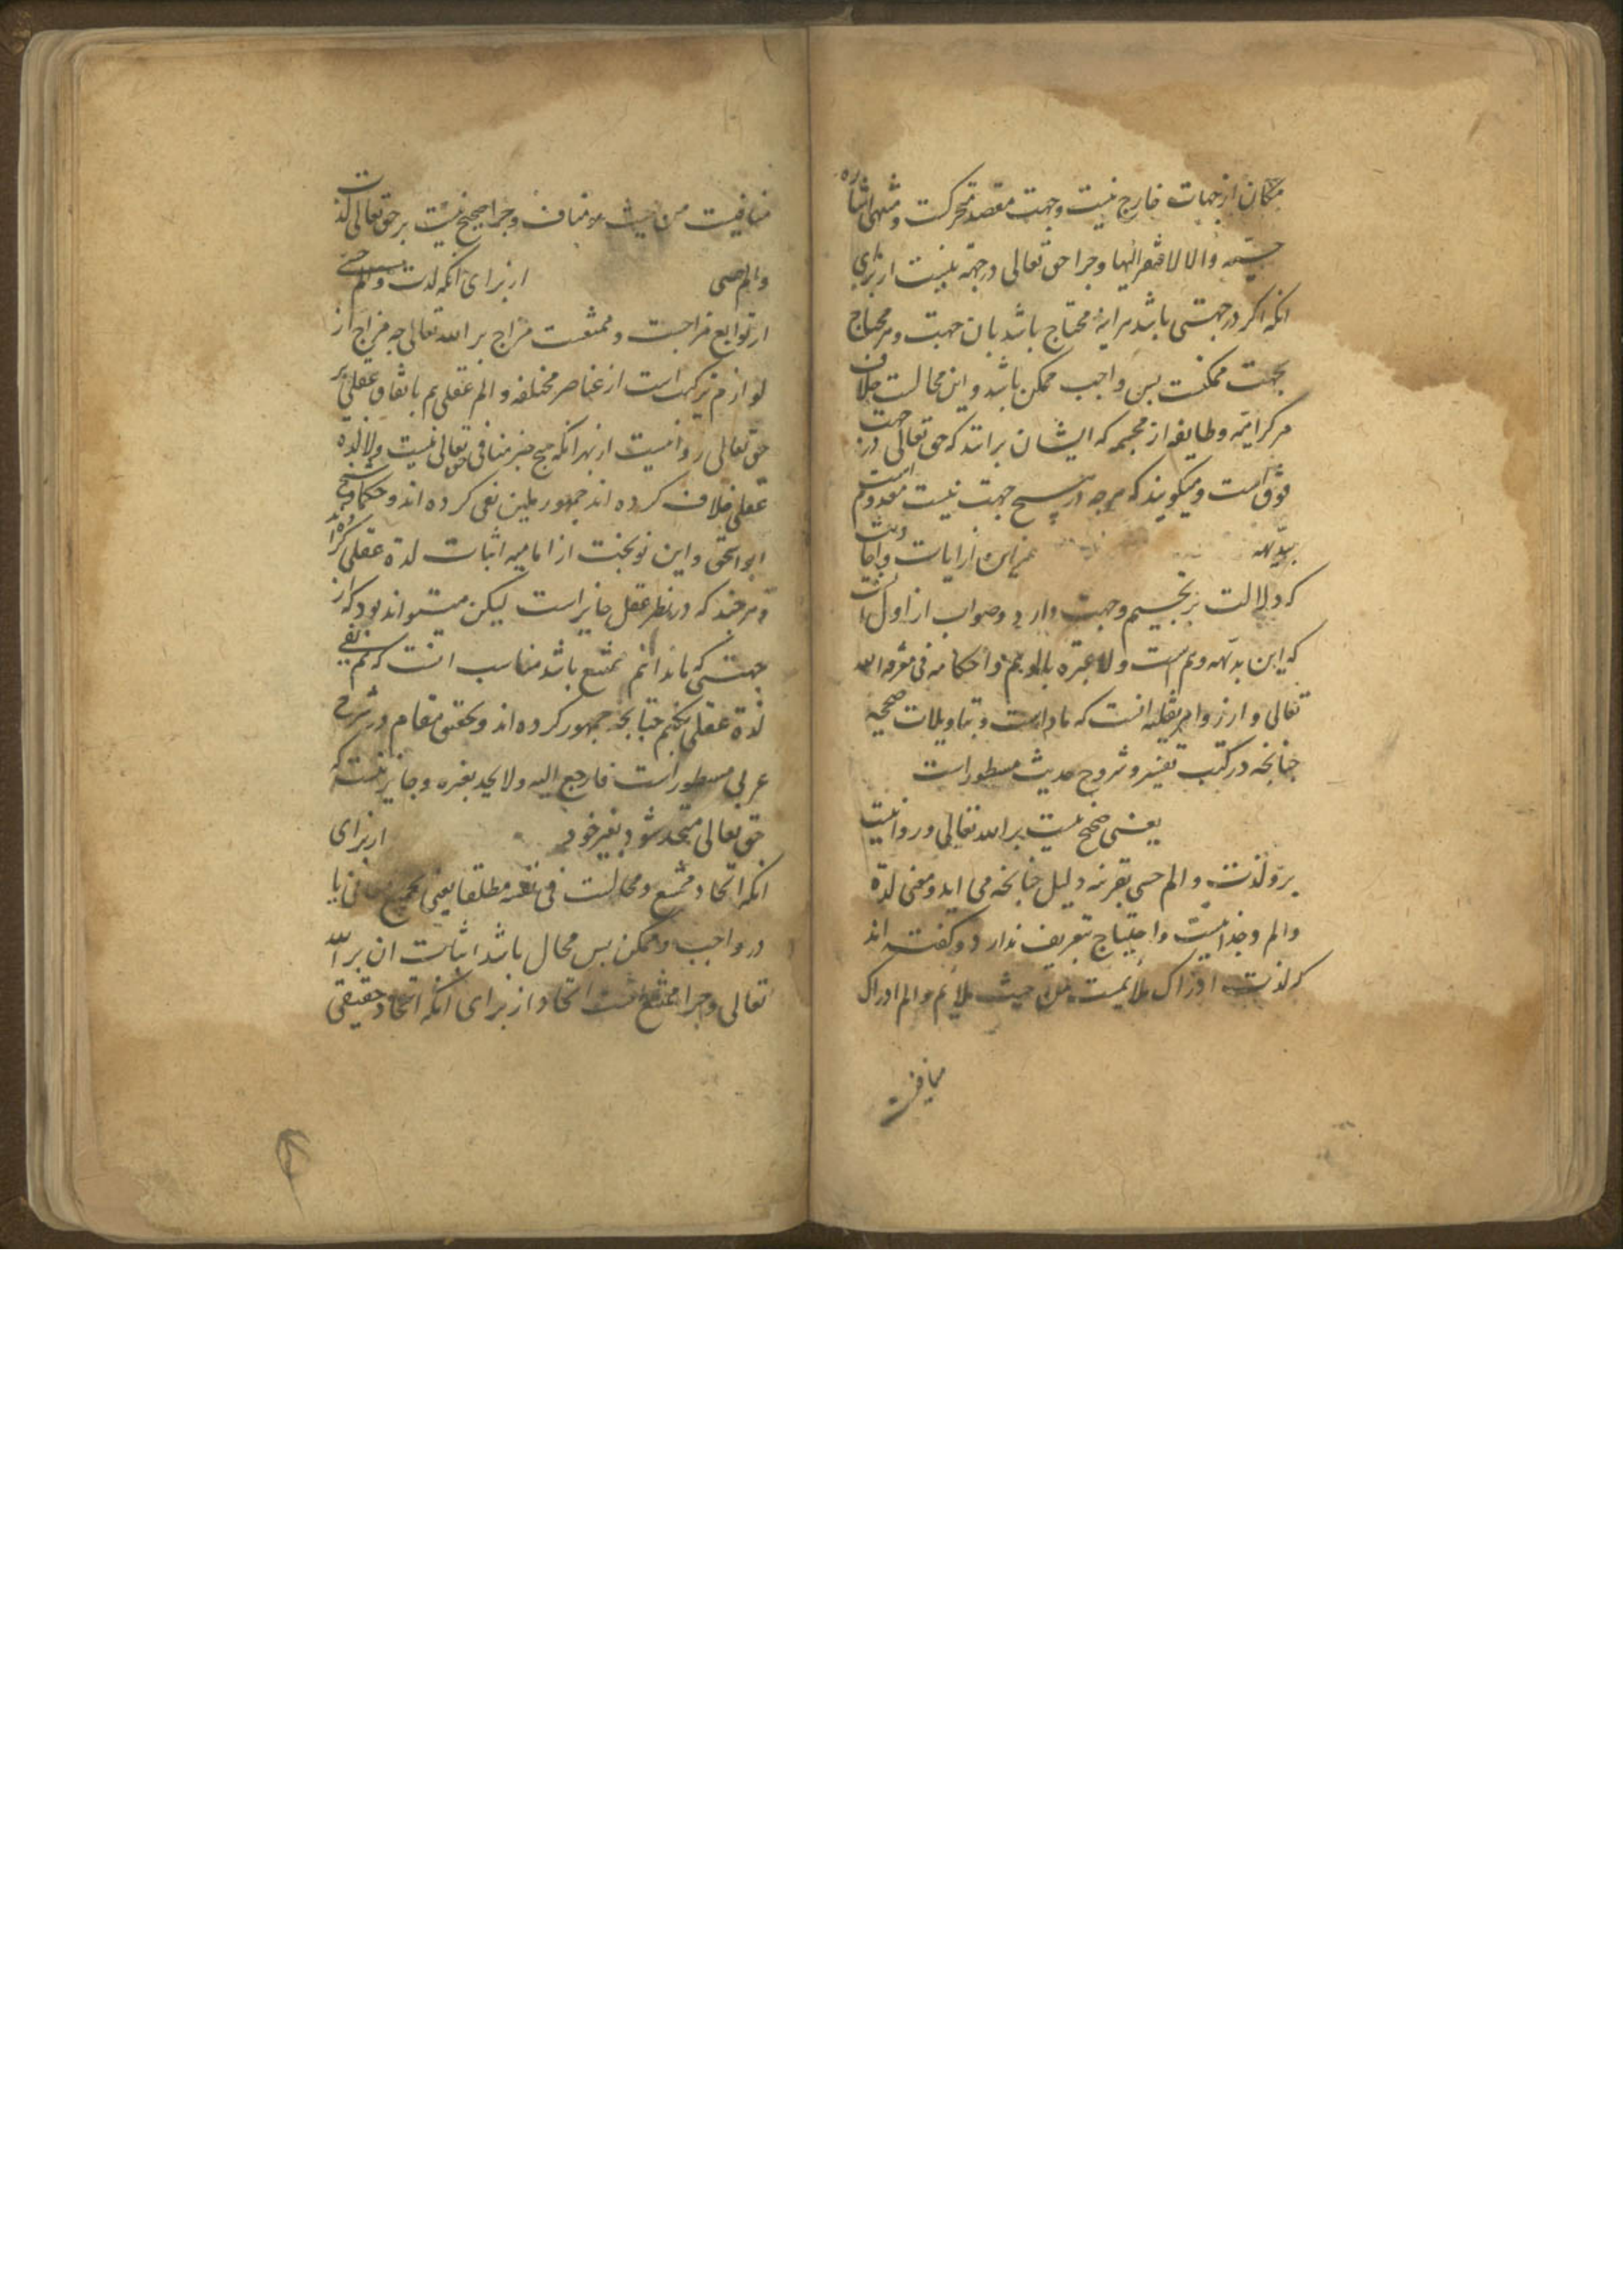 مکان از جهات خارج نیست وجهت مقصد متحرکست و منتهی اشاره
حسیه والا لافتقر الیها وجرا حق تعالی در جهة نیست از برای
انکه اکر در جهتی باشد هراینه محتاج باشد بان جهت و هر محتاج
بجهت ممکنست بس واجب ممکن باشد و این محالست خلاف
مر کرامیه و طایفه از مجسمه که ایشان برانند که حق تعالی در جهت
فوق است و میکویند که هرچه در هیچ جهت نیست معدوم است
بدیهه از ایات و احادیث
که دلالت بر تجسیم وجهت دارد و جواب از اول انست
که این بدیهه وهم است ولا عبرة بالوهم و احکامه فی معرفة الله
تعالی و از ظواهر نقلیه انست که ماولست و بتاویلات صحیحه
جنانجه در کتب تفسیر و شروح حدیث مسطور است
یعنی صحیح نیست بر الله تعالی و روا نیست
برو لذت و الم حسی بقرینه دلیل جنانجه می اید و معنی لذة
والم وجدانیست و احتیاج بتعریف ندارد و کفته اند
که لذت ادراک ملایمست من حیث ملایم و الم ادراک
منافیست
منافیست من حیث هو مناف وجرا صحیح نیست بر حق تعالی لذت
والم حسی از برای انکه لذت و الم حسی
از توابع مزاجست و ممتنعست مزاج بر الله تعالی چه مزاج از
لوازم ترکیب است از عناصر مختلفه و الم عقلی هم باتفاق عقلی بر
حق تعالی روا نیست از بهر انکه هیچ جیز منافی حق تعالی نیست و لذة
عقلی خلاف کرده اند جمهور ملیین نفی کرده اند و حکما و شیخ
ابو اسحق و ابن نوبخت از امامیه اثبات لذة عقلی کرده اند
و هرجند که در نظر عقل جایز است لیکن میتواند بود که از
جهتی که ما ندانیم ممتنع باشد مناسب انست که هم نفی
لذة عقلی بکنیم جنانجه جمهور کرده اند و تحقیق مقام در شرح
عربی مسطور است فارجع الیه ولا یجد بغیره وجایز نیست که
حق تعالی متحد شود بغیر خود از برای
انکه اتحاد ممتنع و محالست فی نفسه مطلقا یعنی بجمیع معانی یا
در واجب و ممکن بس محال باشد اثبات ان بر الله
تعالی وجرا ممتنع است اتحاد از برای انکه اتحاد حقیقی